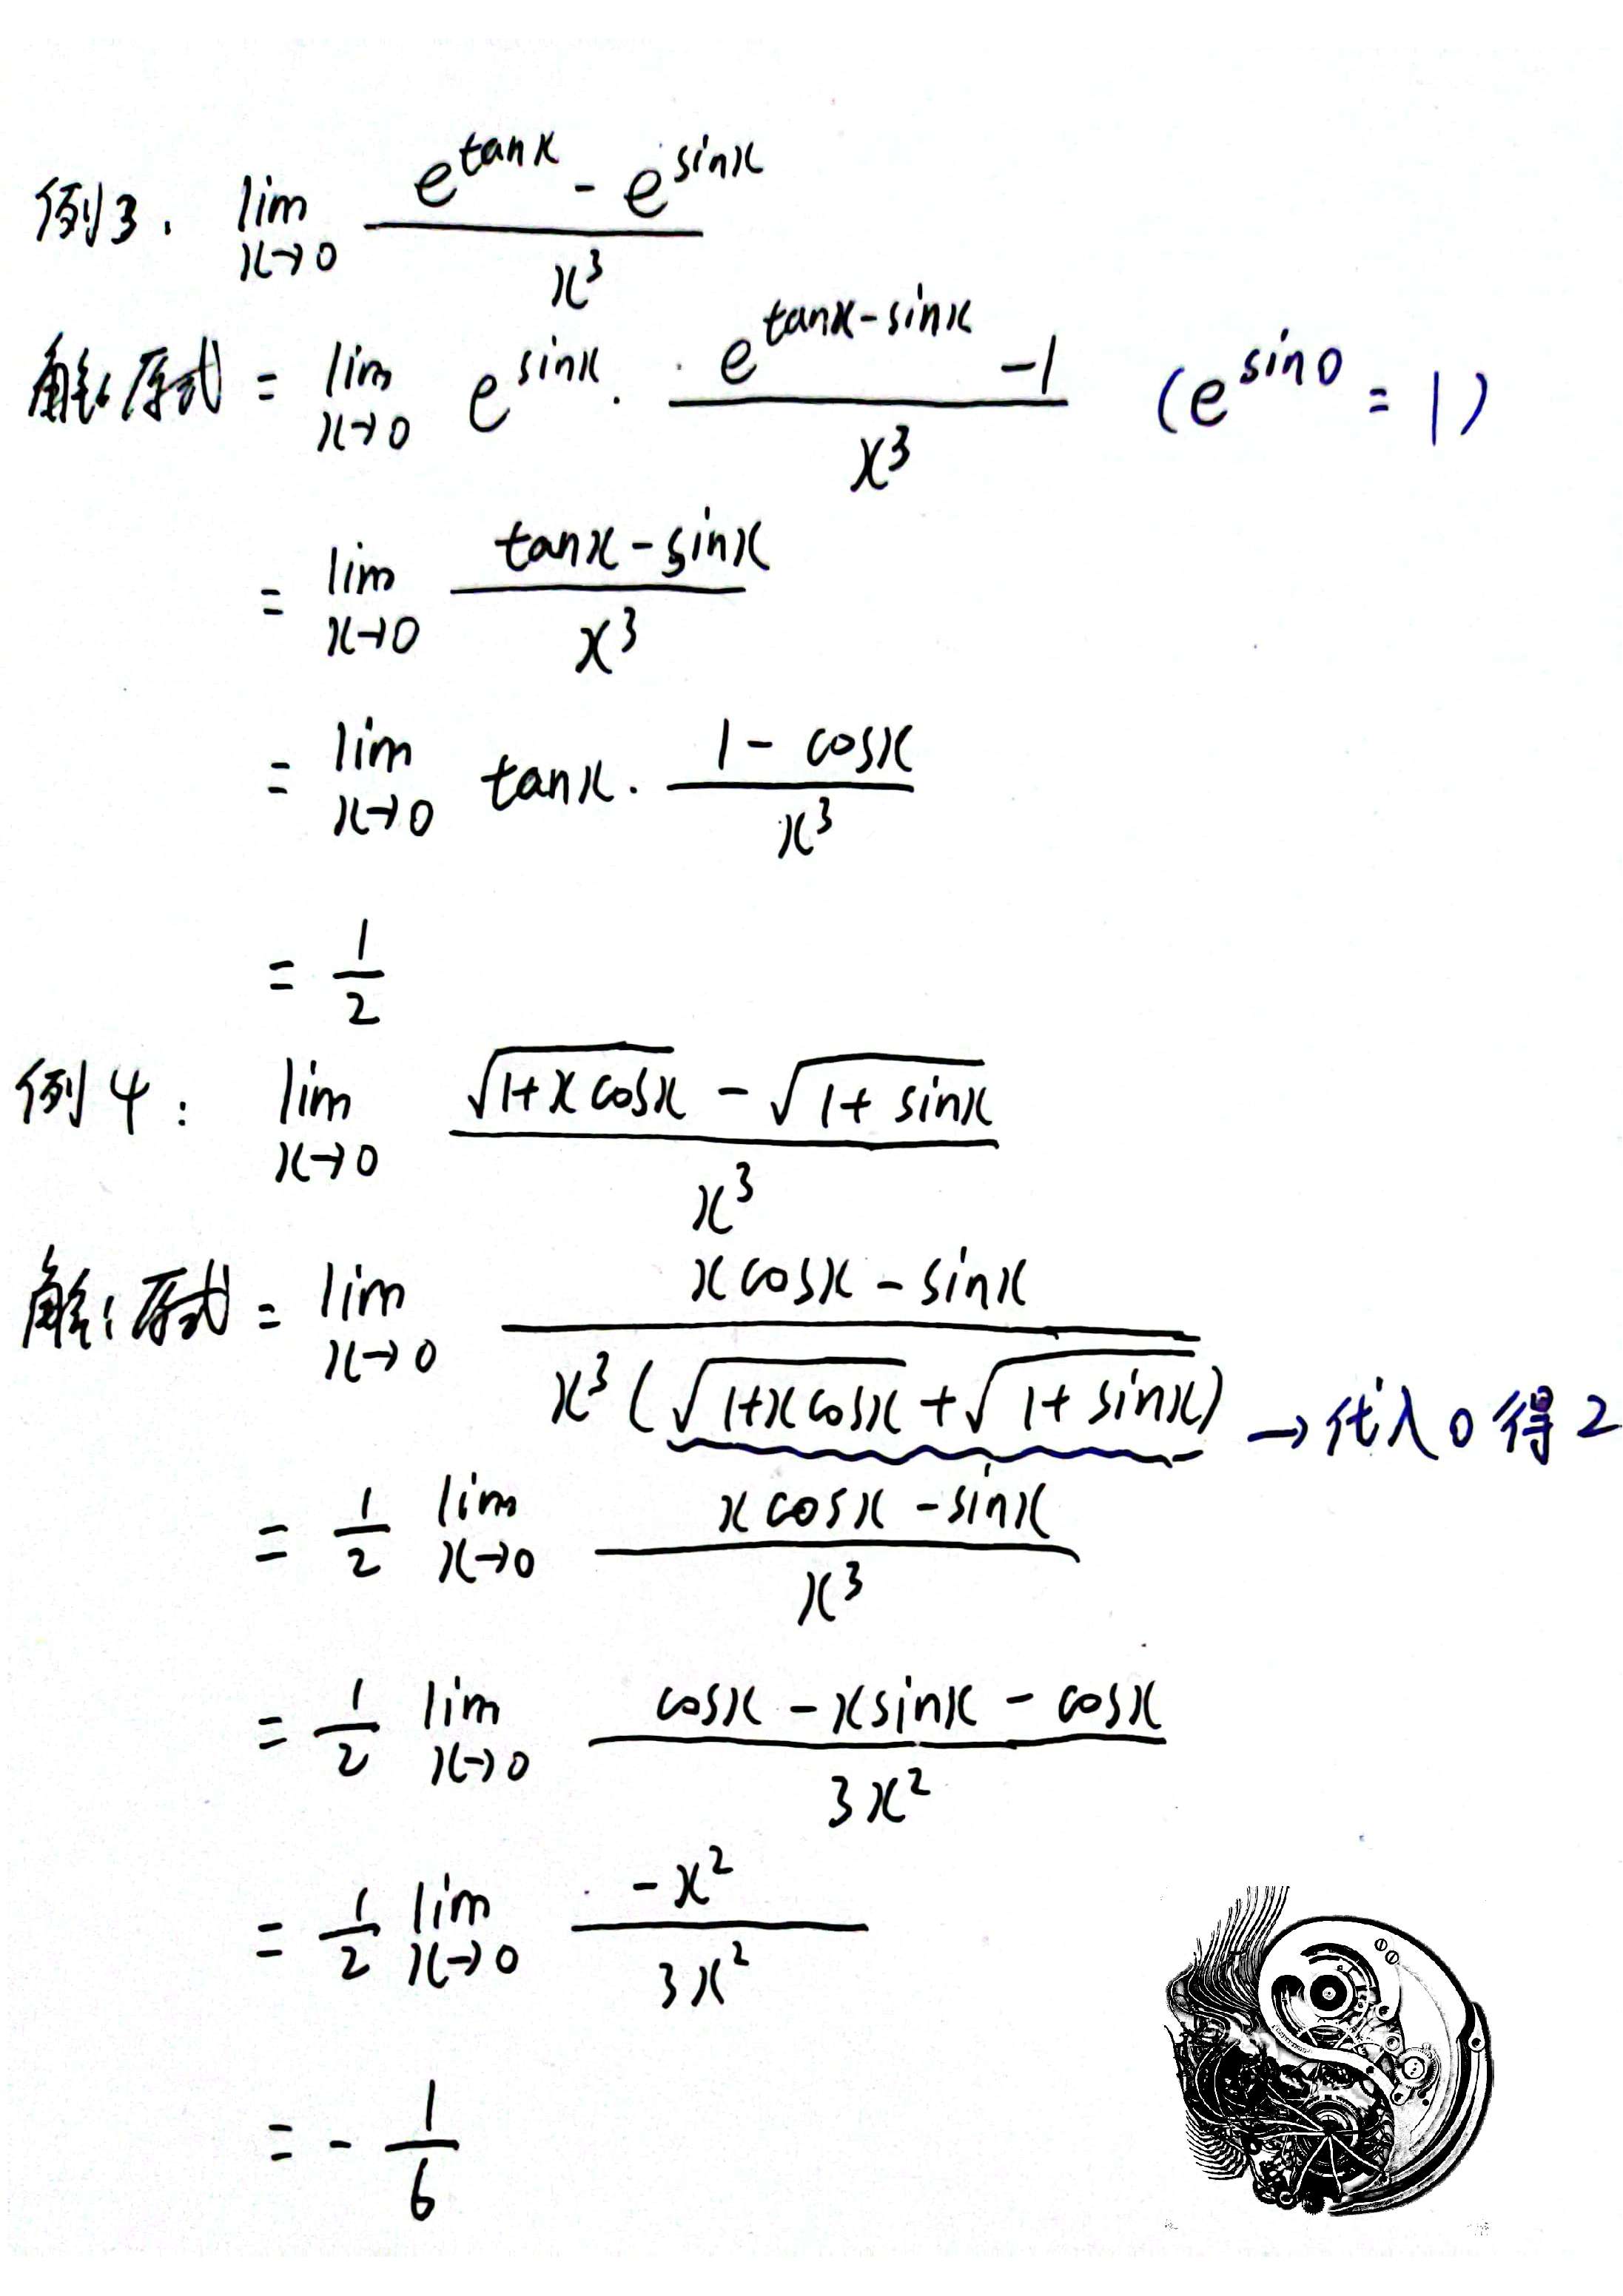 例3. lim_{x→0} (e^{tanx} - e^{sinx}) / x^3
解:原式 = lim_{x→0} e^{sinx} · (e^{tanx-sinx} - 1) / x^3 (e^{sin0} = 1)
= lim_{x→0} (tanx - sinx) / x^3
= lim_{x→0} tanx · (1 - cosx) / x^3
= 1/2
例4: lim_{x→0} (√(1+xcosx) - √(1+sinx)) / x^3
解:原式 = lim_{x→0} (xcosx - sinx) / (x^3(√(1+xcosx) + √(1+sinx))) → 代入0得2
= 1/2 lim_{x→0} (xcosx - sinx) / x^3
= 1/2 lim_{x→0} (cosx - xsinx - cosx) / 3x^2
= 1/2 lim_{x→0} -x^2 / 3x^2
= - 1/6